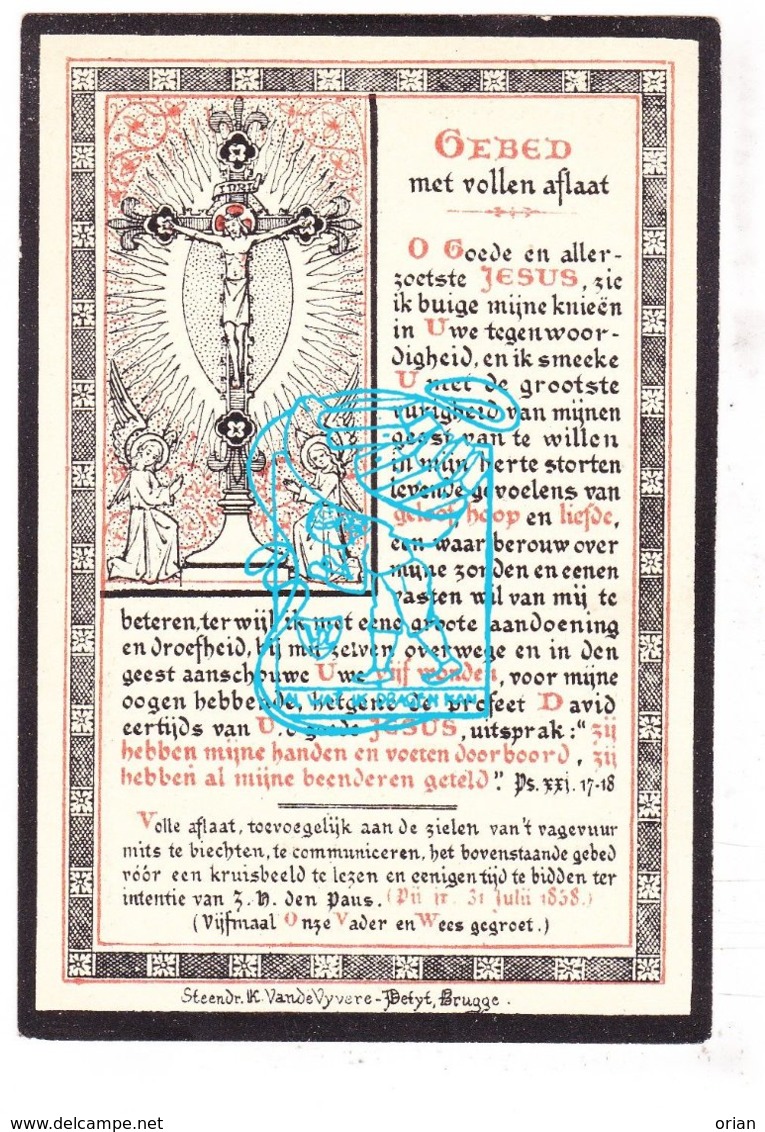 INRI
GEBED
met vollen aflaat
O Goede en aller-
zoetste JESUS, zie
ik buige mijne knieën
in Uwe tegenwoor-
digheid, en ik smeeke
U met de grootste
vurigheid van mijnen
geest van te willen
in mijn herte storten
levende gevoelens van
geloof, hoop en liefde,
een waar berouw over
mijne zonden en eenen
vasten wil van mij te
beteren, terwijl ik met eene groote aandoening
en droefheid, bij mij zelven overwege en in den
geest aanschouwe Uwe vijf wonden, voor mijne
oogen hebbende, hetgene de profeet David
eertijds van U, o goede JESUS, uitsprak: "zij
hebben mijne handen en voeten doorboord, zij
hebben al mijne beenderen geteld". Ps. xxj. 17-18
Volle aflaat, toevoegelijk aan de zielen van 't vagevuur
mits te biechten, te communiceren, het bovenstaande gebed
vóór een kruisbeeld te lezen en eenigen tijd te bidden ter
intentie van Z. H. den Paus. (Pii jx. 31 Julii 1858.)
(Vijfmaal Onze Vader en Wees gegroet.)
Steendr. K. VandeVyvere-Petyt, Brugge.
AL WAT IK DRAGEN KAN
www.delcampe.net
orian